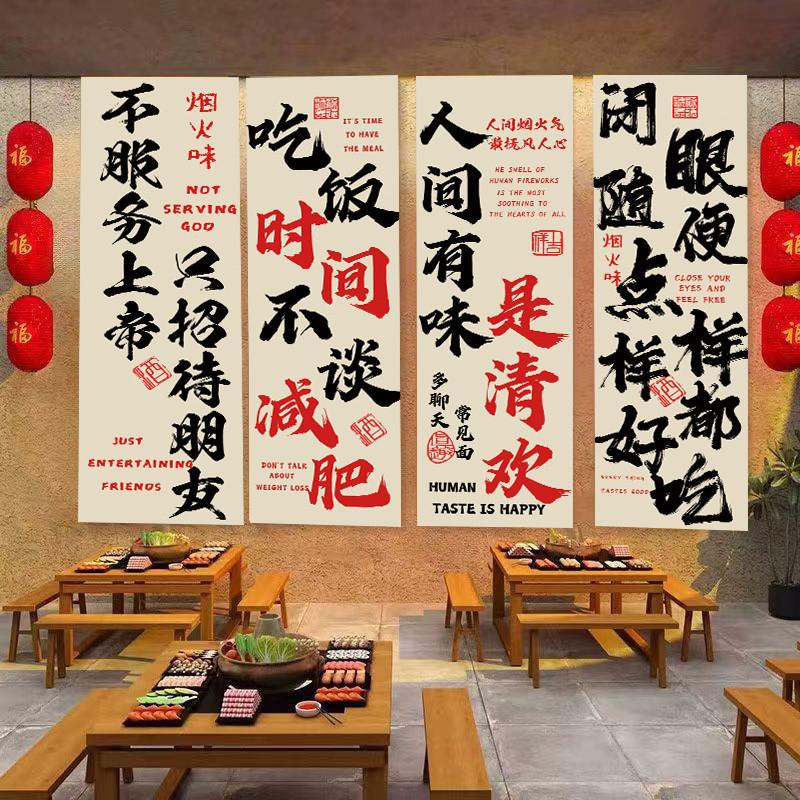 福
福
福
不服务上帝
烟火味
NOT
SERVING
GOD
只招待朋友
JUST
ENTERTAINING
FRIENDS
吃饭
IT'S TIME
TO HAVE
THE MEAL
时间
不谈
减肥
DON'T TALK
ABOUT
WEIGHT LOSS
人间有味
人间烟火气
最抚凡人心
HE SWELL OF
HUMAN FIREWORKS
IS THE MOST
SOOTHING TO
THE HEARTS OF ALL
是清欢
多聊天
常见面
HUMAN
TASTE IS HAPPY
闭眼
随便
点
烟火味
CLOSE YOUR
EYES AND
FEEL FREE
样样都
好吃
TASTES GOOD
福
福
福